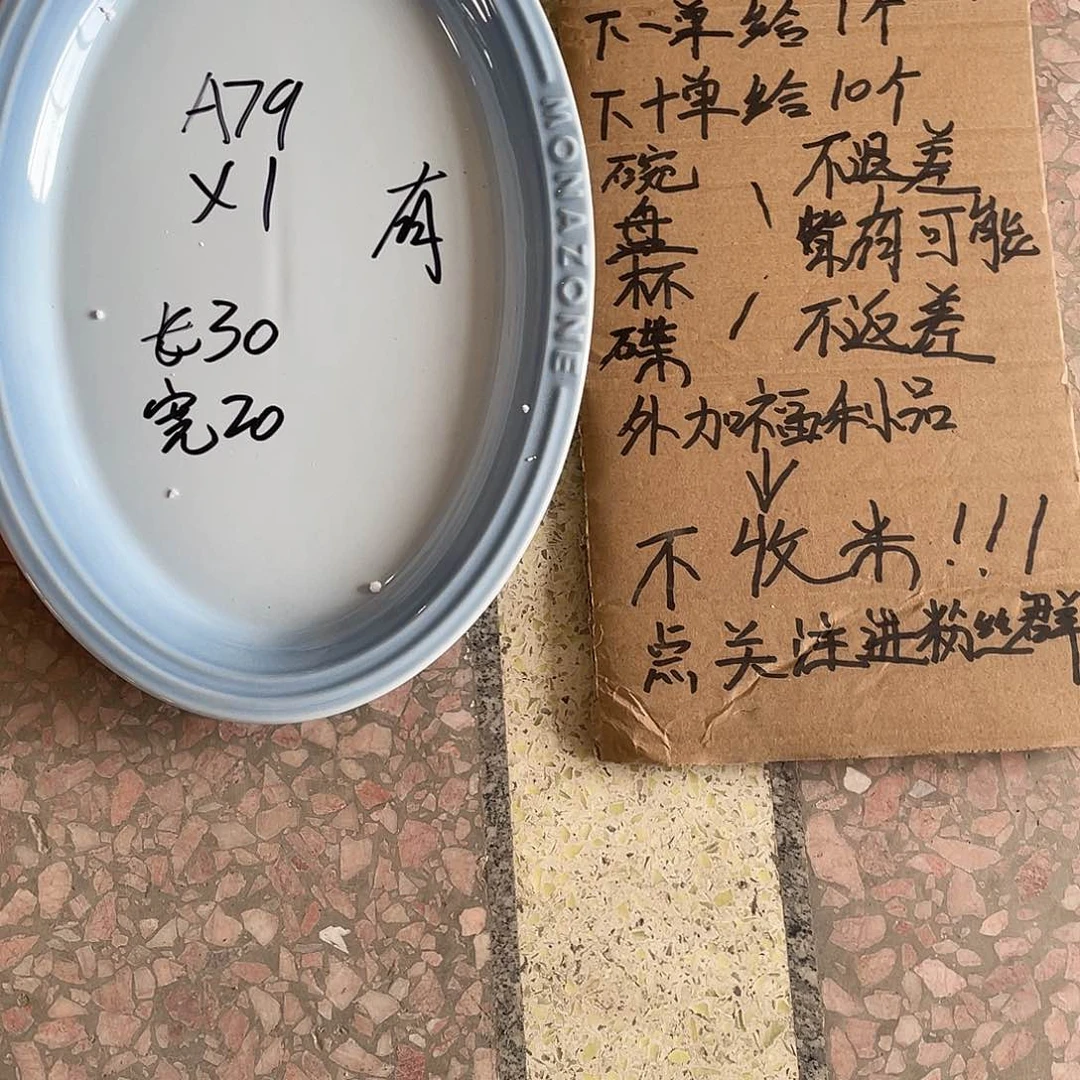 A79
X1
有
长30
宽20
MONAZONE
下一单给1个
下十单给10个
碗
盘
杯
碟
不退差
皆有可能
不返差
外加福利品
不收米!!!
点关注进粉丝群